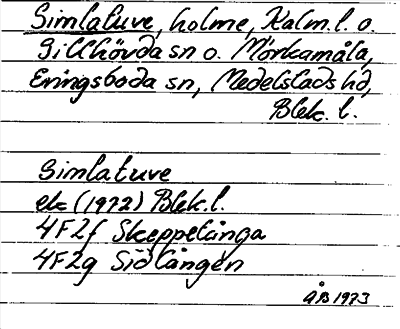 Simlatuve, holme, Kalm. l. o.
Gillhövda sn o. Mörkamåla,
Eringsboda sn, Medelstads hd,
Blek. l.
Simlatuve
ek (1972) Blek. l.
4F2f Skeppelånga
4F2g Sidlången
ÅB 1973